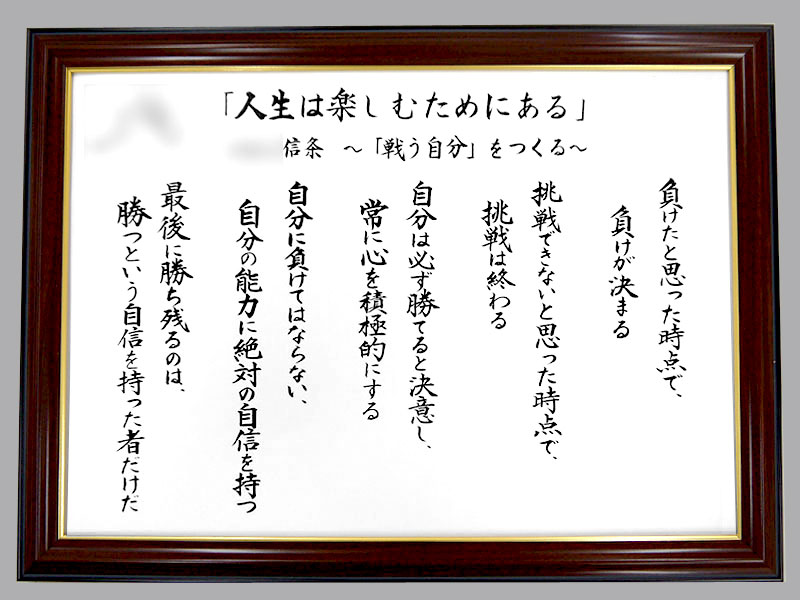 「人生は楽しむためにある」
信条 〜「戦う自分」をつくる〜
負けたと思った時点で、
負けが決まる
挑戦できないと思った時点で、
挑戦は終わる
自分は必ず勝てると決意し、
常に心を積極的にする
自分に負けてはならない、
自分の能力に絶対の自信を持つ
最後に勝ち残るのは、
勝つという自信を持った者だけだ